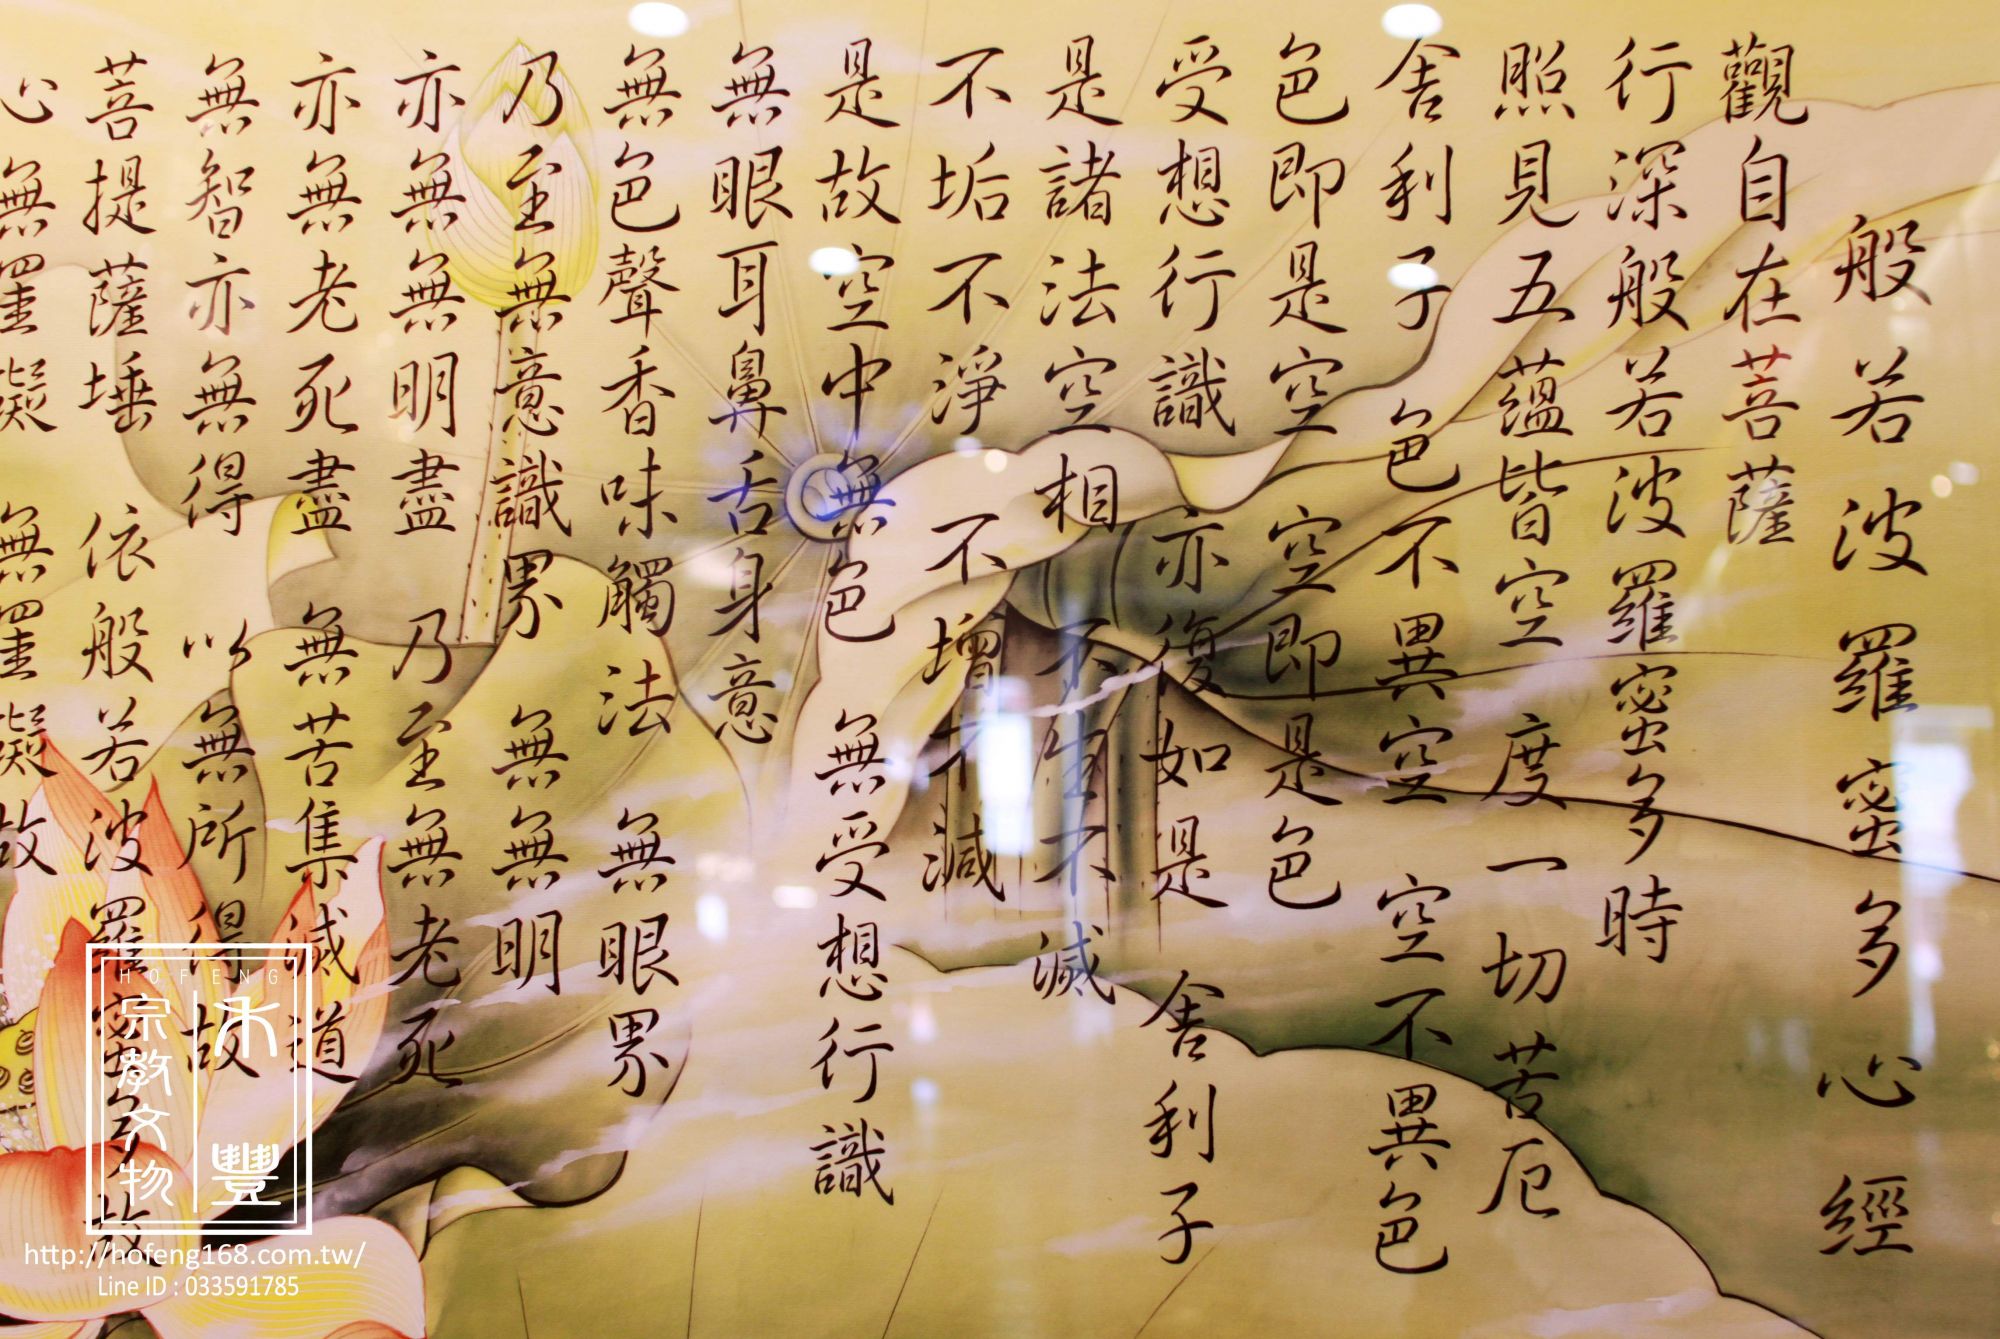 般若波羅蜜多心經
觀自在菩薩
行深般若波羅蜜多時
照見五蘊皆空 度一切苦厄
舍利子 色不異空 空不異色
色即是空 空即是色
受想行識 亦復如是 舍利子
是諸法空相 不生不滅
不垢不淨 不增不減
是故空中無色 無受想行識
無眼耳鼻舌身意
無色聲香味觸法 無眼界
乃至無意識界 無無明
亦無無明盡 乃至無老死
亦無老死盡 無苦集滅道
無智亦無得 以無所得故
菩提薩埵 依般若波羅蜜多故
心無罣礙 無罣礙故
HOFENG
禾豐
宗教文物
http://hofeng168.com.tw/
Line ID : 033591785